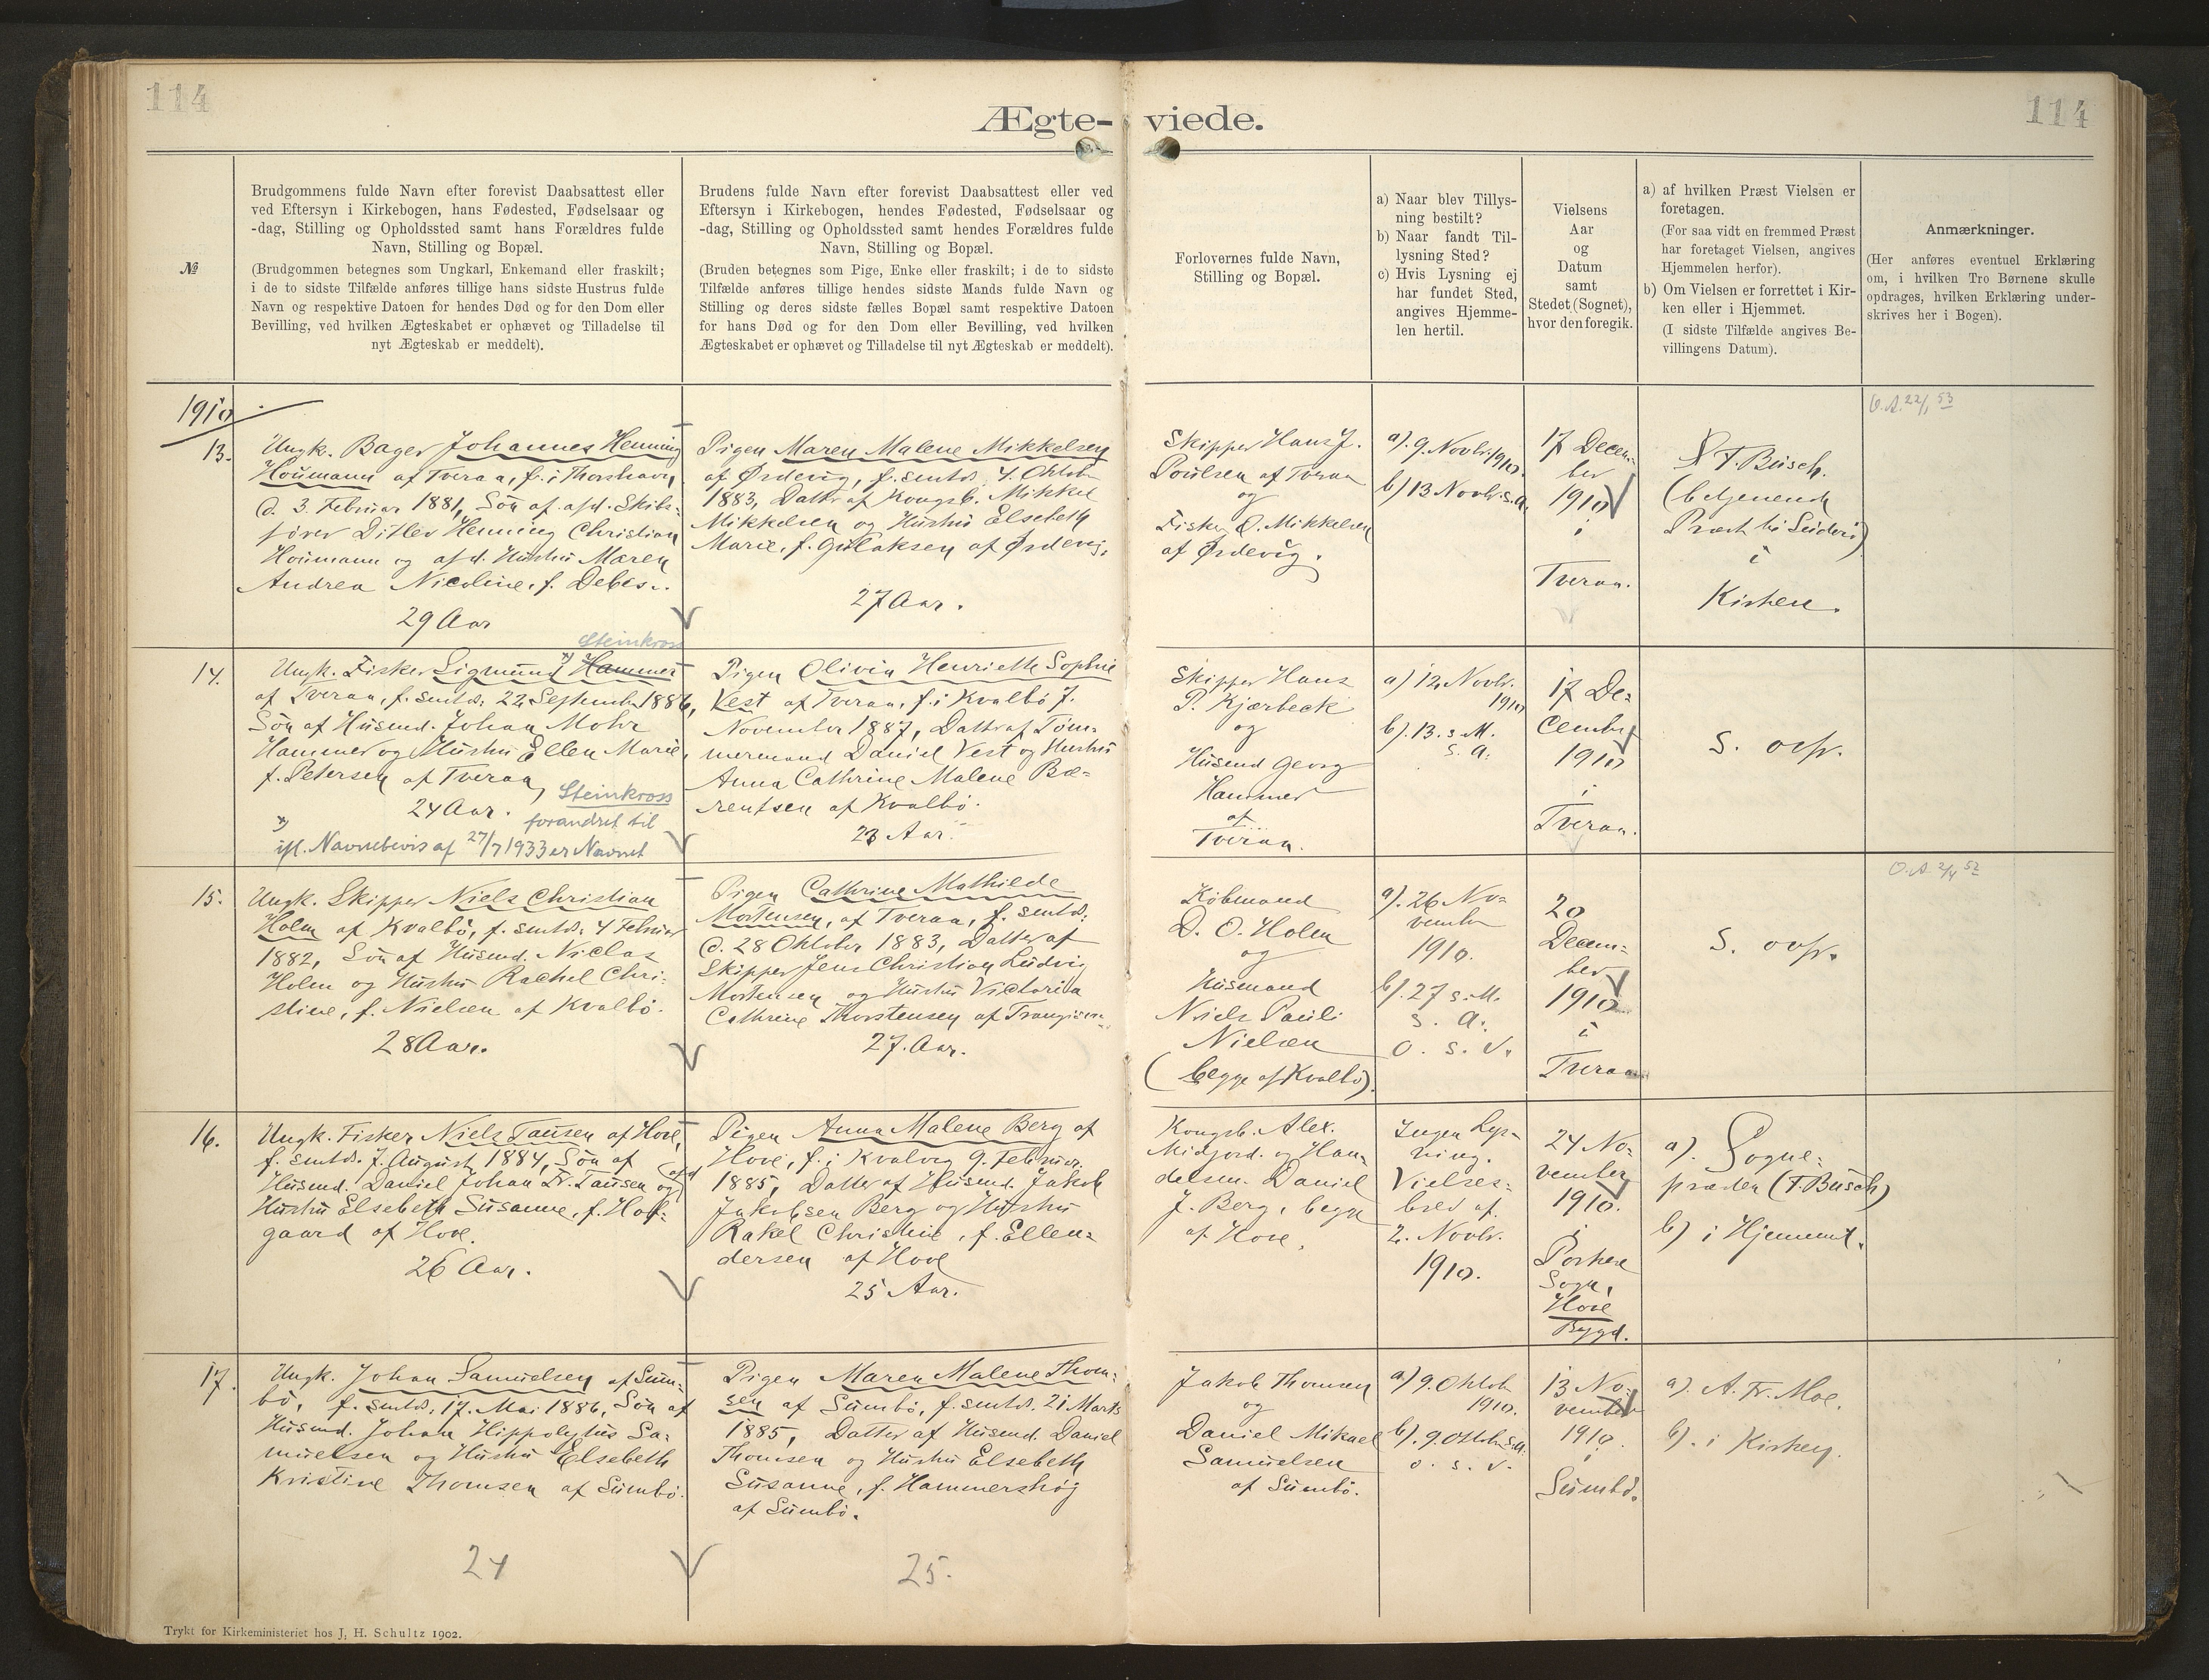 114
114
Ægte-viede.
№
Brudgommens fulde Navn efter forevist Daabsattest eller
ved Eftersyn i Kirkebogen, hans Fødested, Fødselsaar og
-dag, Stilling og Opholdssted samt hans Forældres fulde
Navn, Stilling og Bopæl.
(Brudgommen betegnes som Ungkarl, Enkemand eller fraskilt;
i de to sidste Tilfælde anføres tillige hans sidste Hustrus fulde
Navn og respektive Datoen for hendes Død og for den Dom eller
Bevilling, ved hvilken Ægteskabet er ophævet og Tilladelse til
nyt Ægteskab er meddelt).
Brudens fulde Navn efter forevist Daabsattest eller ved
Eftersyn i Kirkebogen, hendes Fødested, Fødselsaar og
-dag, Stilling og Opholdssted samt hendes Forældres fulde
Navn, Stilling og Bopæl.
(Bruden betegnes som Pige, Enke eller fraskilt; i de to sidste
Tilfælde anføres tillige hendes sidste Mands fulde Navn og
Stilling og deres sidste fælles Bopæl samt respektive Datoen
for hans Død og for den Dom eller Bevilling, ved hvilken
Ægteskabet er ophævet og Tilladelse til nyt Ægteskab er meddelt).
Forlovernes fulde Navn,
Stilling og Bopæl.
a) Naar blev Tillys-
ning bestilt?
b) Naar fandt Til-
lysning Sted?
c) Hvis Lysning ej
har fundet Sted,
angives Hjemme-
len hertil.
Vielsens
Aar
og
Datum
samt
Stedet (Sognet),
hvor den foregik.
a) af hvilken Præst Vielsen er
foretagen.
(For saa vidt en fremmed Præst
har foretaget Vielsen, angives
Hjemmelen herfor).
b) Om Vielsen er forrettet i Kir-
ken eller i Hjemmet.
(I sidste Tilfælde angives Be-
villingens Datum).
Anmærkninger.
(Her anføres eventuel Erklæring
om, i hvilken Tro Børnene skulle
opdrages, hvilken Erklæring under-
skrives her i Bogen).
1910
13.
Ungk. Bager Johannes Henning
Houmann af Tveraa, f. i Thorshavn
d. 3. Februar 1881, Søn af afd. Skibs-
fører Ditlev Henning Christian
Houmann og afd. Hustru Maren
Andrea Nicoline, f. Debes.
29 Aar
Pigen Maren Malene Mikkelsen
af Ørdevig, f. smtds. 4. Oktob
1883, Datter af Kongsb. Mikkel
Mikkelsen og Hustru Elsebeth
Marie, f. Gullaksen af Ørdevig.
27 Aar.
Skipper Hans J.
Poulsen af Tveraa
og
Fisker O. Mikkelsen
af Ørdevig.
a). 9. Novbr. 1910.
b) 13 Novbr. s.A.
17 Decem-
ber
1910
i
Tveraa.
F. Busch.
(betjenende
Præst til Suderø)
i
Kirken.
O.A. 22/1 53
14.
Steinkross
Ungk. Fisker Sigmund x) Hammer
af Tveraa, f. smtds. 22 September 1886,
Søn af Husmd. Johan Mohr
Hammer og Hustru Ellen Marie,
f. Petersen af Tveraa,
24 Aar.
x) ifl. Navnebevis af 27/7 1933 er Navnet
forandret til
Steinkross
Pigen Olivia Henriette Sophie
Vest af Tveraa, f. i Kvalbø 7.
November 1887, Datter af Tøm-
mermand Daniel Vest og Hustru
Anna Cathrine Malene Bæ-
rentsen af Kvalbø.
23 Aar.
Skipper Hans
P. Kjærbeck
og
Husmd Georg
Hammer
af
Tveraa.
a) 12. Novbr.
1910
b). 13. s. M.
s. A.
17 De-
cember
1910
i
Tveraa.
s. ovfr.
15.
Ungk. Skipper Niels Christian
Holm af Kvalbø, f. smtds. 4 Februar
1882, Søn af Husmd. Niclas
Holm og Hustru Rachel Chri-
stine, f. Nielsen af Kvalbø.
28 Aar.
Pigen Cathrine Mathilde
Mortensen, af Tveraa, f. smtds.
d. 28 Oktober 1883, Datter af
Skipper Jens Christian Ludvig
Mortensen og Hustru Victoria
Cathrine Thorstensen af
27. Aar.
Købmand
D. O. Holm
og
Husmand
Niels Pauli
Nielsen
(begge af Kvalbø).
a). 26 No-
vember
1910.
b). 27 s. M.
s. A.
O. s. v.
20
Decem-
ber
1910
i
Tveraa
s. ovfr.
O.A. 2/4 52
16.
Ungk. Fisker Niels Tausen af Hove,
f. smtds. 7. August 1884, Søn af
Husmd. Daniel Johan Fr. Tausen og afd
Hustru Elsebeth Susanne, f. Hof-
gaard af Hove.
26 Aar.
Pigen Anna Malene Berg af
Hove, f. i Kvalvig 9. Februar
1885, Datter af Husmd. Jakob
Jakobsen Berg og Hustru
Rakel Christine, f. Ellen-
dersen af Hove
25 Aar.
Kongsb. Alex.
Midjord. og Han-
delsm. Daniel
J. Berg, begge
af Hove.
Ingen Lys-
ning.
Vielses-
brev af
2. Novbr.
1910.
24 No-
vember
1910.
i
Porkere
Sogn,
Hove
Bygd.
a). Sogne-
præsten (F. Busch)
b) i Hjemmet.
17.
Ungk. Johan Samuelsen af Sum-
bø, f. smtds. 17. Mai 1886, Søn af
Husmd. Johan Hippolytus Sa-
muelsen og Hustru Elsebeth
Kristine Thomsen af Sumbø.
24
Pigen Maren Malene Thom-
sen af Sumbø, f. smtds. 21 Marts
1885, Datter af Husmd. Daniel
Thomsen og Hustru Elsebeth
Susanne, f. Hammershøg
af Sumbø.
25.
Jakob Thomsen
og
Daniel Mikael
Samuelsen
af Sumbø.
a) 9. Oktob
1910.
b). 9. Oktob s.A.
o. s. v.
13 No-
vember
1910.
i
Sumbø.
a). A. Fr. Moe.
b). i Kirken.
Trykt for Kirkeministeriet hos J. H. Schultz 1902.